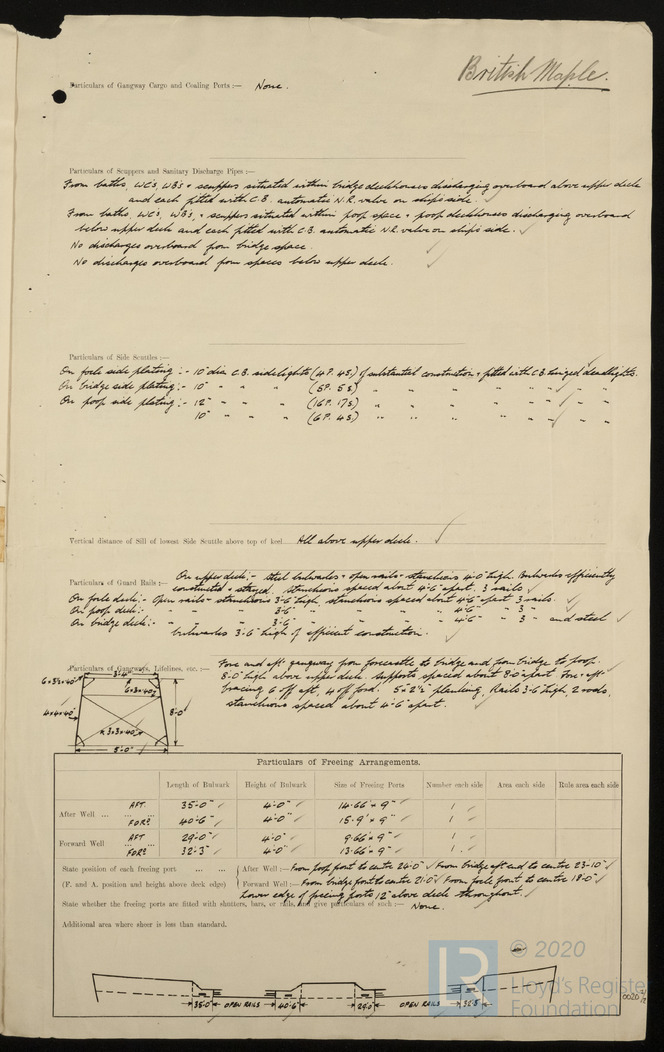 British Maple.
Particulars of Gangway Cargo and Coaling Ports :— None.
Particulars of Scuppers and Sanitary Discharge Pipes :—
From baths, WCs, WBs + scuppers situated within bridge deckhouses discharging overboard above upper deck
and each fitted with C.B. automatic N.R. valve on ship's side.
From baths, WC's, WBs, + scuppers situated within poop space + poop deckhouses discharging overboard
below upper deck and each fitted with C.B. automatic N.R. valve on ship's side.
No discharges overboard from bridge space.
No discharges overboard from spaces below upper deck.
Particulars of Side Scuttles :—
On fo'cle side plating :- 10" dia. C.B. sidelights (4P. 4S.) of substantial construction + fitted with C.B. hinged deadlights.
On bridge side plating :- 10" " " " (5P. 5S) " " " " " " "
On poop side plating :- 12" " " " (16P. 17S) " " " " " " "
10" " " " (6P. 4S) " " " " " " "
Vertical distance of Sill of lowest Side Scuttle above top of keel All above upper deck.
Particulars of Guard Rails :— On upper deck :- Steel bulwarks + open rails - stanchions 4'-0" high. Bulwarks efficiently
constructed + stayed. Stanchions spaced about 4'-6" apart, 3 rails
On fo'cle deck :- Open rails - stanchions 3'-6" high, stanchions spaced about 4'-6" apart 3 rails.
On poop deck :- " " " 3'-6" " " " " 4'-6" " 3 "
On bridge deck :- " " " 3'-6" " " " " 4'-6" " 3 " and steel
bulwarks 3'-6" high of efficient construction.
Particulars of Gangways, Lifelines, etc. :— Fore and aft gangway from forecastle to bridge and from bridge to poop.
8'-0" high above upper deck. Supports spaced about 8'-0" apart. Fore + aft
bracing 6 off aft, 4 off ford. 5" x 2½" planking, Rails 3'-6" high, 2 rods,
stanchions spaced about 4'-6" apart.
3'-4"
6×3×40
4×4×40
8'-0"
3×3×40
5'-0"
Particulars of Freeing Arrangements.
Length of Bulwark Height of Bulwark Size of Freeing Ports Number each side Area each side Rule area each side
After Well ... AFT. 35'-0" 4'-0" 14.66' × 9" 1
FORD 40'-6" 4'-0" 15.9' × 9" 1
Forward Well AFT 29'-0" 4'-0" 9.66' × 9" 1
FORD 32'-3" 4'-0" 13.66' × 9" 1
State position of each freeing port ... ... After Well :— From poop front to centre 24'-0" From bridge aft end to centre 23'-10"
(F. and A. position and height above deck edge) Forward Well :— From bridge front to centre 21'-0" From fo'cle front to centre 18'-0"
Lower edge of freeing ports 12" above deck throughout.
State whether the freeing ports are fitted with shutters, bars, or rails, and give particulars of such :— None.
Additional area where sheer is less than standard.
35'-0" OPEN RAILS 40'-6" 29'-0" OPEN RAILS 32'-3"
© 2020
LR
Lloyd's Register
Foundation